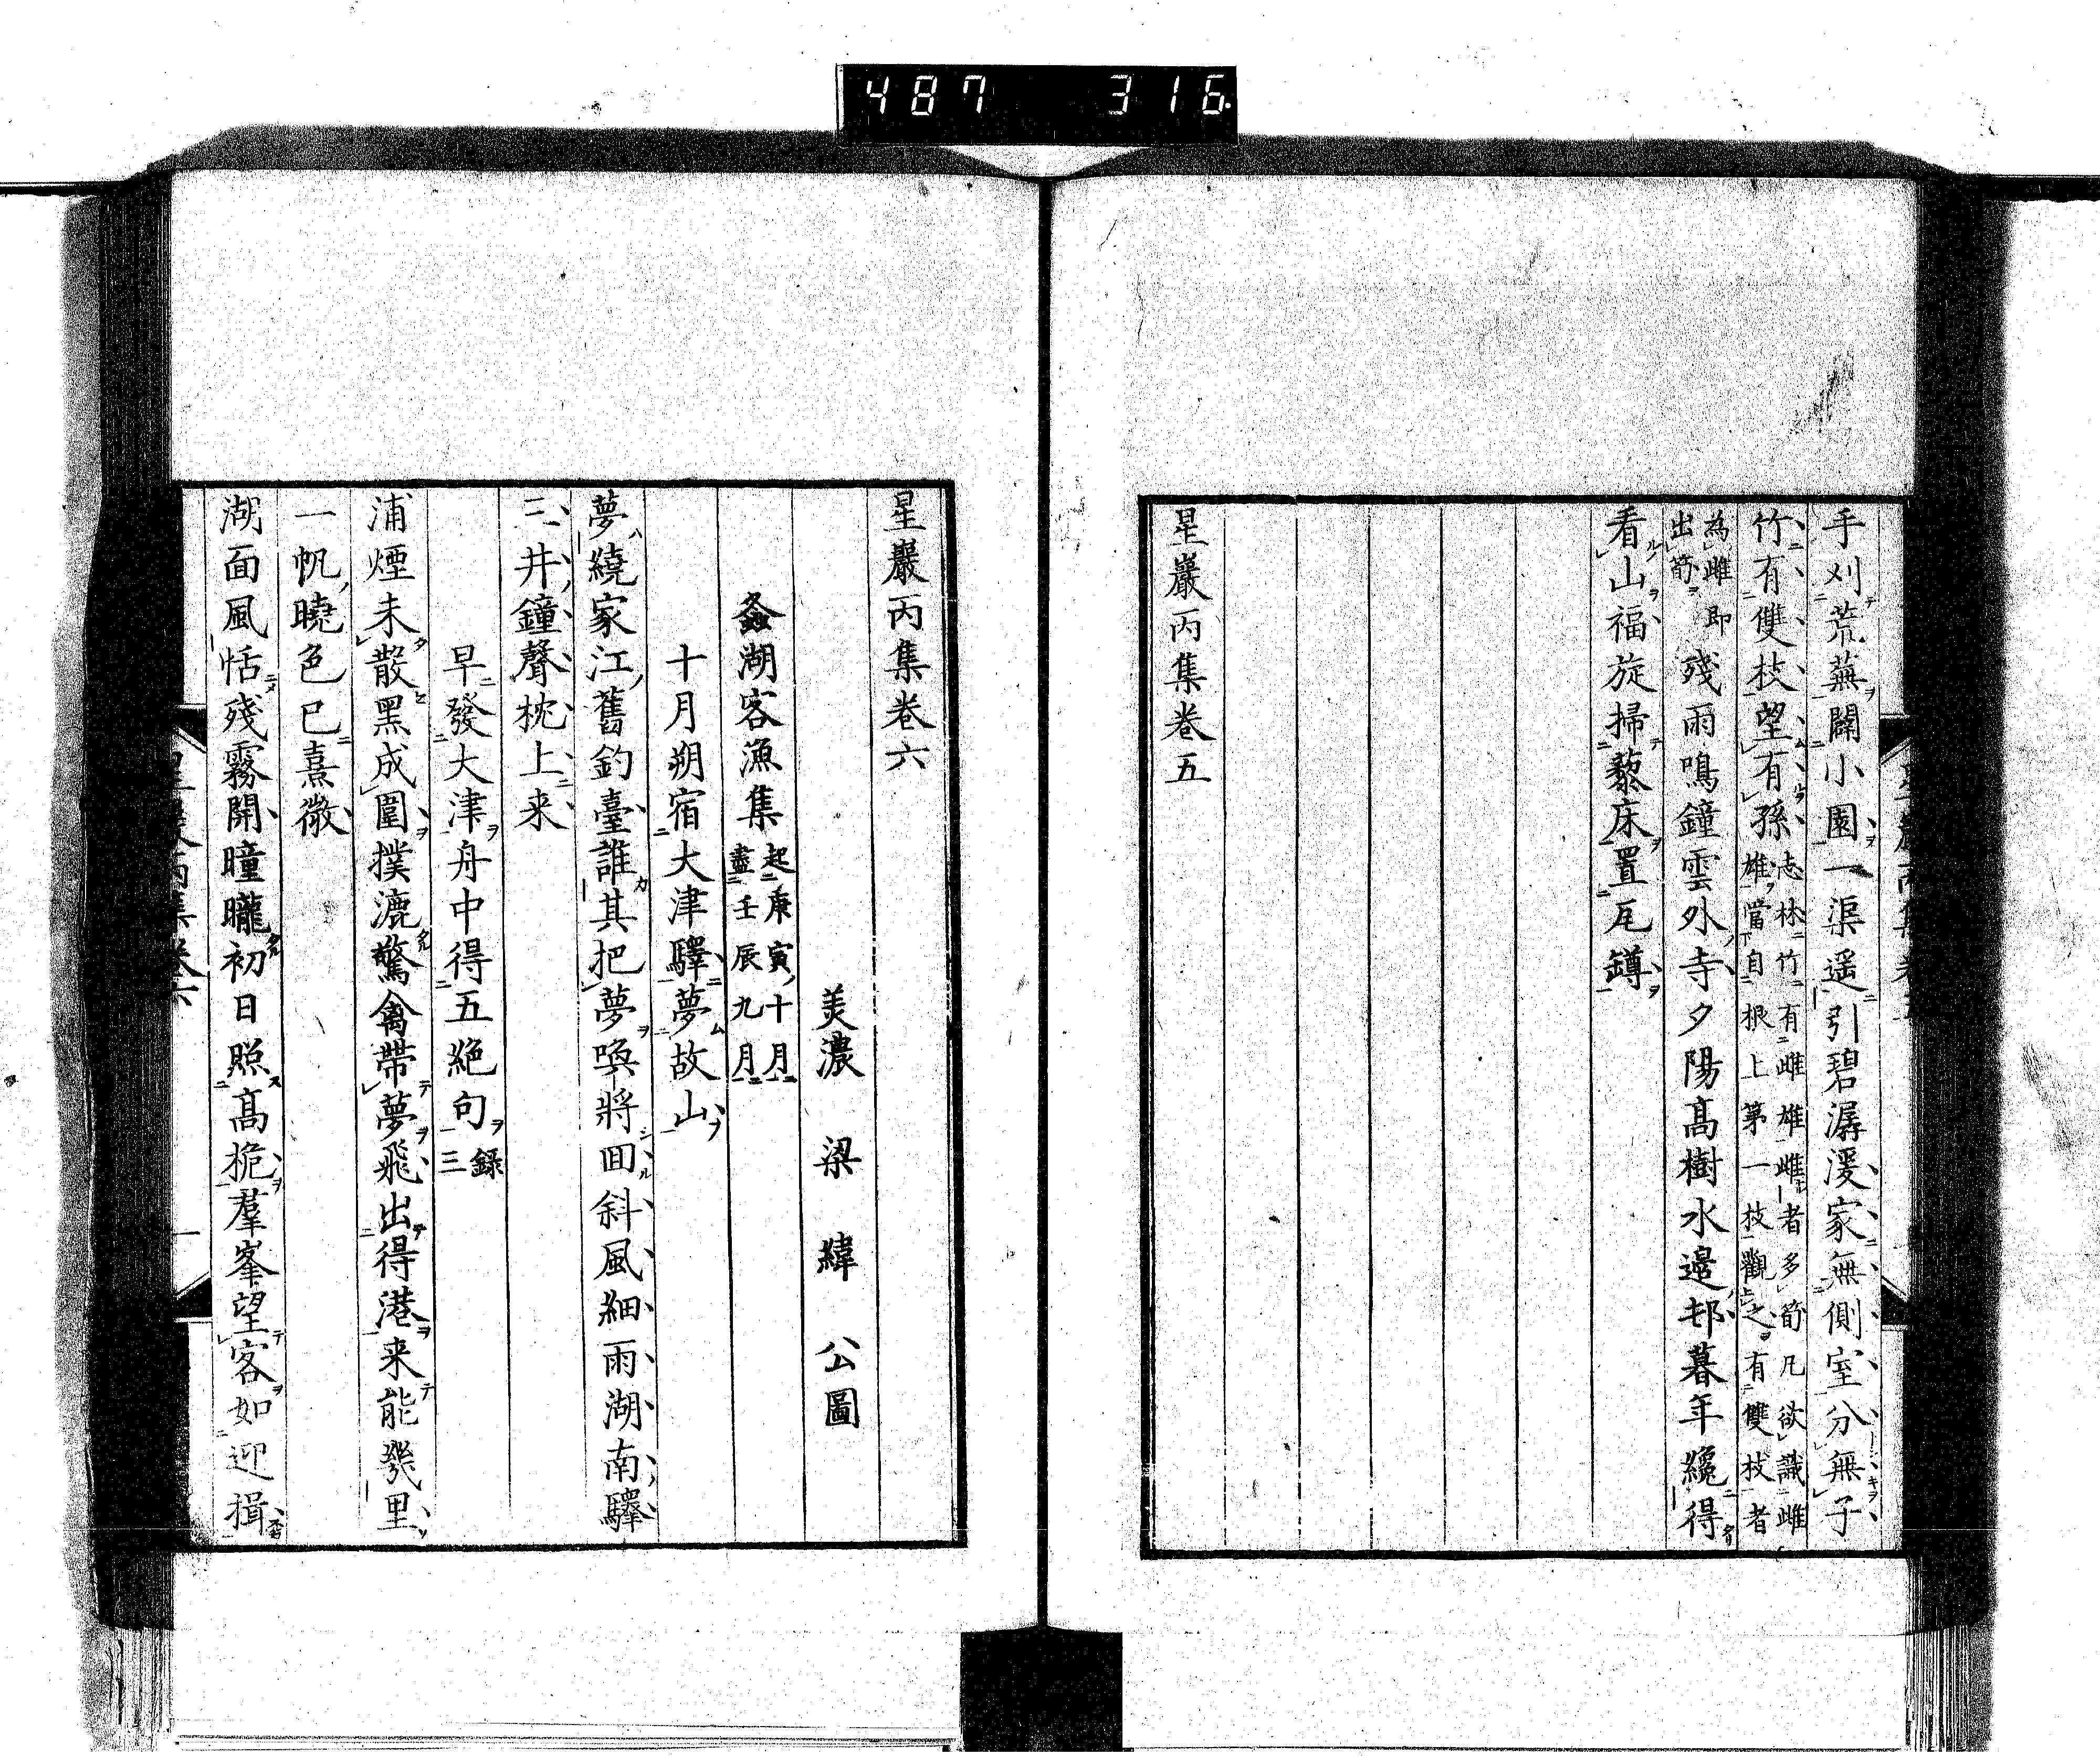 487 316
手刈荒蕪闢小園一渠遥引碧潺湲家無側室分無子
竹有雙枝望有孫志林竹有雌雄雌者多筍凡欲識雌
雄當自根上第一枝觀之有雙枝者
為雌即
出筍
残雨鳴鐘雲外寺夕陽髙樹水邉邨暮年纔得
看山福旋掃藜床置瓦罇
星巖丙集卷五
星巖丙集卷六
美濃 梁 緯 公圖
蠡湖客漁集
起庚寅十月
盡壬辰九月
十月朔宿大津驛夢故山
夢繞家江舊釣臺誰其把夢喚將囬斜風細雨湖南驛
三井鐘聲枕上来
早發大津舟中得五絶句
録
三
浦煙未散黒成圍撲漉驚禽帶夢飛出得港来能幾里
一帆曉色已熹微
湖面風恬殘霧開曈曨初日照髙桅羣峯望客如迎揖
星巖丙集卷六
一